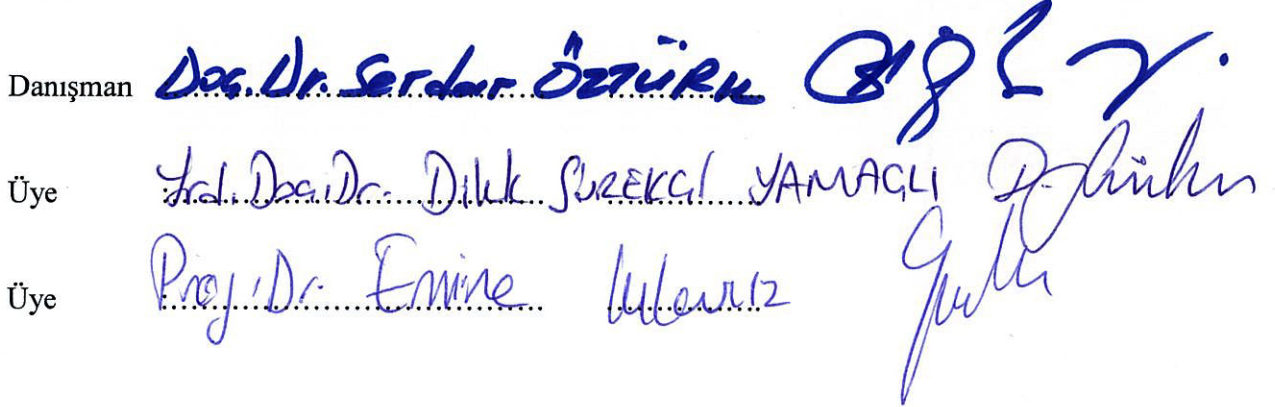 Danışman Doç. Dr. Serdar ÖZTÜRK
Üye Yrd. Doç. Dr. Dilek SÜREKÇİ YAMAÇLI
Üye Prof. Dr. Emine